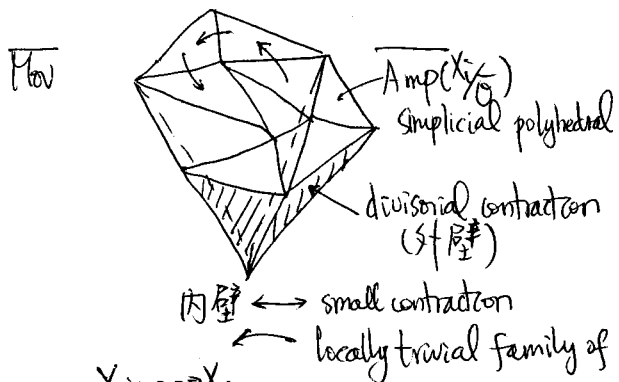 Mov
Amp(Xi/Q)
simplicial polyhedral
divisorial contraction
(外壁)
内壁 ←→ small contraction
← locally trivial family of